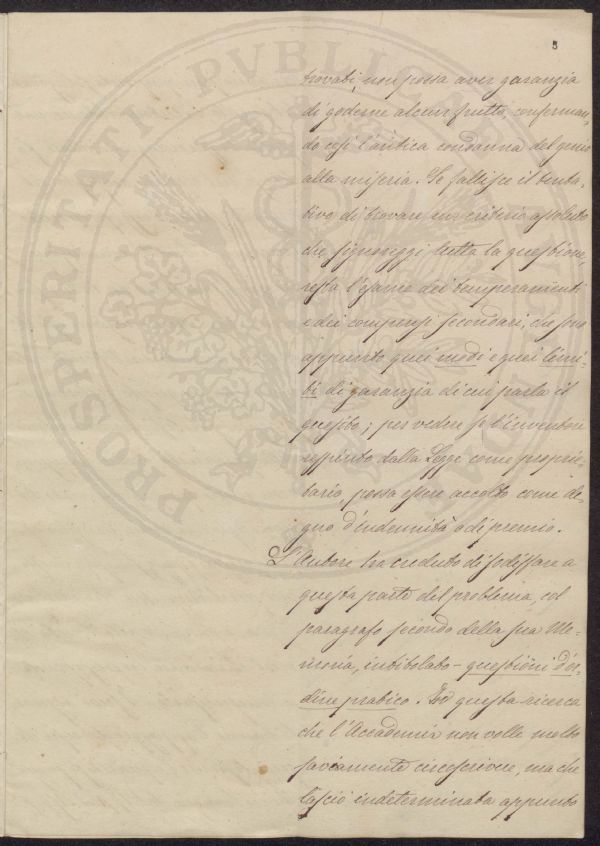 5
trovati, non possa aver garanzia
di goderne alcun frutto, conferman-
do così l'antica condanna del genio
alla miseria. Se fallisce il tenta-
tivo di trovare un criterio assoluto
che signoreggi tutta la questione,
resta l'esame dei temperamenti
e dei compensi secondari, che sono
appunto quei modi e quei limi-
ti di garanzia di cui parla il
quesito; per vedere se l'inventore
respinto dalla Legge come proprie-
tario, possa essere accolto come de-
gno d'indennità o di premio.
L'Autore ha creduto di sodisfare a
questa parte del problema, col
paragrafo secondo della sua Me-
moria, intitolato - questioni d'or-
dine pratico. Ed questa ricerca
che l'Accademia non volle molto
saviamente circoscrivere, ma che
lasciò indeterminata appunto
PROSPERITATI PVBLICAE